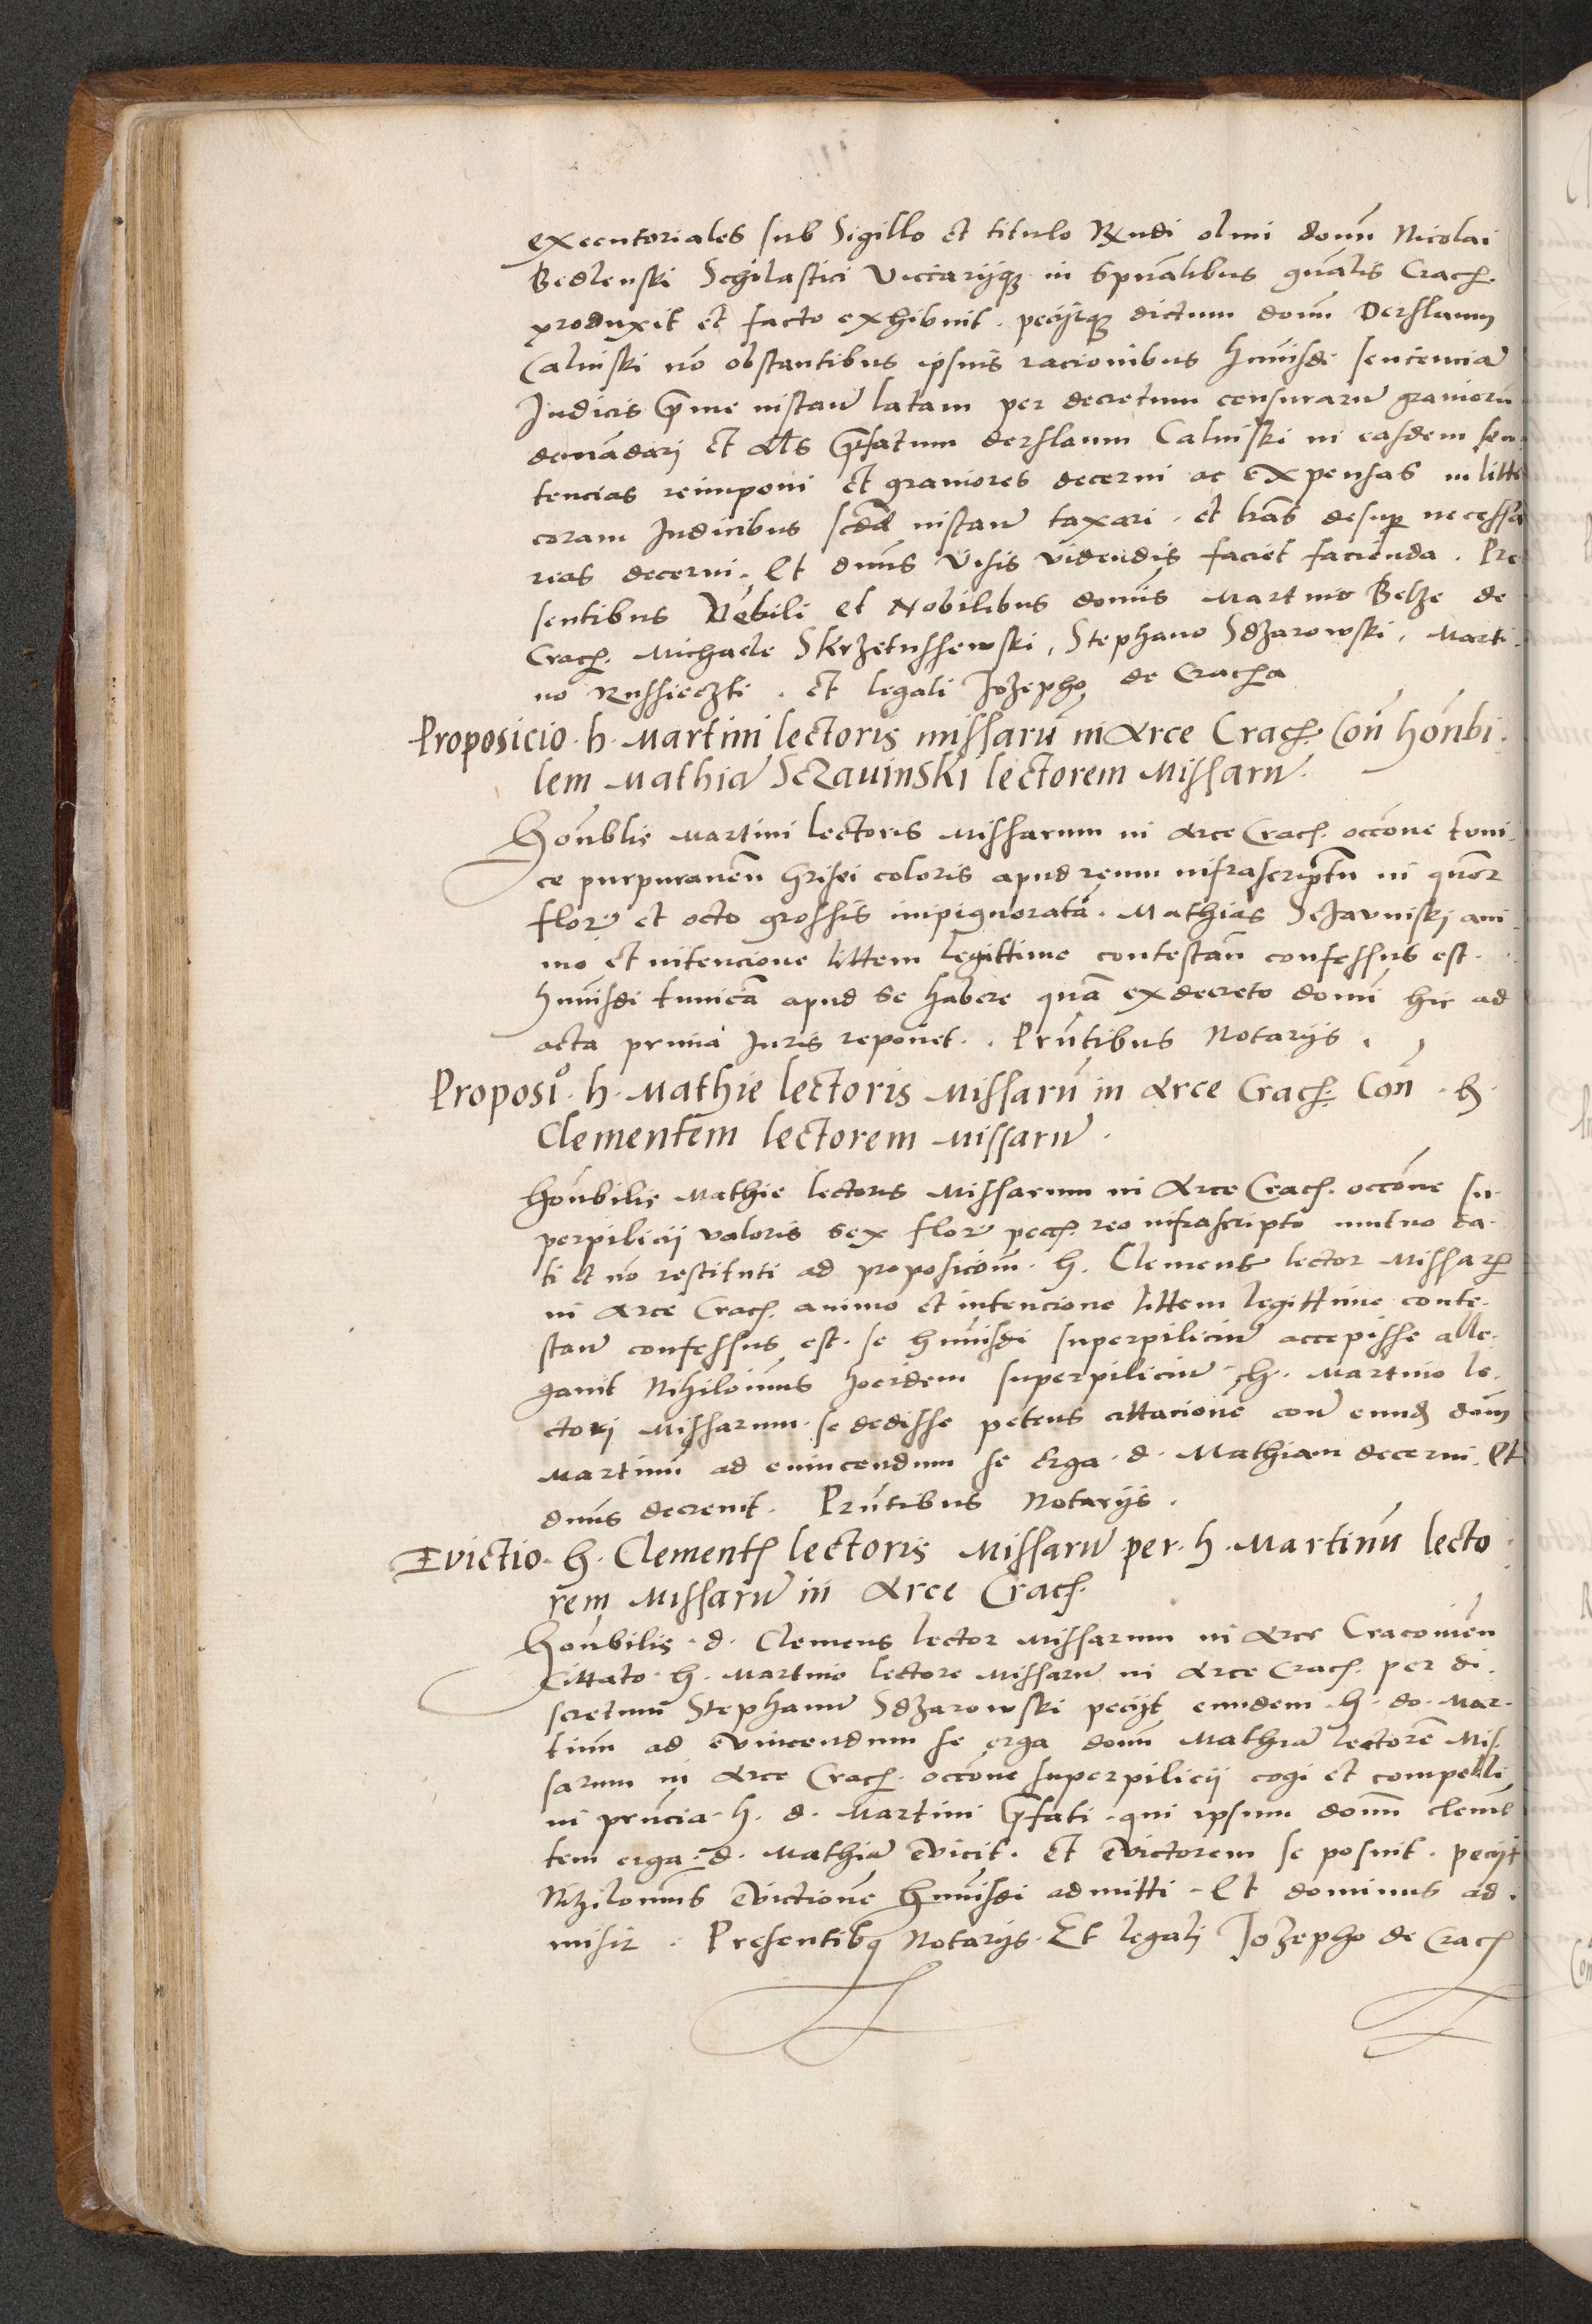 executoriales sub Sigillo et titulo Rxndi olmi domi Nicolai
Bedlenski Scholastici Viccariiq in Spualibus gnalis Crac.
produxit et facto exhibuit. peciitq dictum domi Derslaum
Calinski no obstantibus ipsius racionibus huiusdi sentencia
Judicis prime instan latam per decretum censuraru gravioru
demadari et als prefatum derslaum Calinski in easdem sen
tencias reimponi et graviores decerni ac expensas in litte
coram Judicibus scda instan taxari. et lras desup necessa
rias decerni. Et dnus visis videndis faciet facienda. Pre
sentibus Nobili et Nobilibus domis Martino Belze de
Crac. Michaele Skrzetusshewski, Stephano Sdzarowski, Marti
no Russieczki. et legali Jozepho de Craca
Proposicio h. Martini lectoris missaru in Arce Crac. Con honbi
lem Mathia Sczavinski lectorem Missaru
Honblis Martini lectoris Missarum in Arce Crac. occone tuni
ce purpuranem Grisei coloris apud reum infrascriptu in quor
flor et octo grossis inpignorata. Mathias Sczavinski ani
mo et intencione littem legittime contestan confessus est.
huiusdi tunica apud se habere qua ex decreto domi hic ad
acta prima Juris reponet. Pruntibus Notariis.
Proposio h. Mathie lectoris Missaru in Arce Crac. Con h.
Clementem lectorem Missaru.
Honbilis Mathie lectoris Missarum in Arce Crac. occone su
perpilicii valoris sex flor pecc. reo infrascripto mutuo da
ti et no restituti ad proposicom h. Clemens lector Missar
in Arce Crac. animo et intencione littem legittime conte
stan confessus est. se huiusdi superpiliciu accepisse alle
gavit Nihilominus hocidem superpiliciu h. Martino le
ctori Missarum se dedisse petens cittacione con eund dom
Martinu ad evincendum se Erga d. Mathiam decerni. Et
dnus decrevit. Pruntibus Notariis.
Evictio h. Clement lectoris Missaru per h. Martinu lecto
rem Missaru in Arce Crac.
Honbilis d. Clemens lector Missarum in Arce Cracovien
Cittato h. Martino lectore Missaru in Arce Crac. per di
scretum Stephanu Sdzarowski peciit eundem h. do. Mar
tinu ad evincendum se erga domi Mathia lectore Mis
sarum in Arce Crac. occone superpilicii cogi et compelli
in pruncia h. d. Martini prefati qui ipsum domi clemen
tem erga d. Mathia evicit. Et evictorem se posuit. peciit
Nihilominus evictione huiusdi admitti. Et dominus ad
misit. Presentibq Notariis Et legali Jozepho de Crac